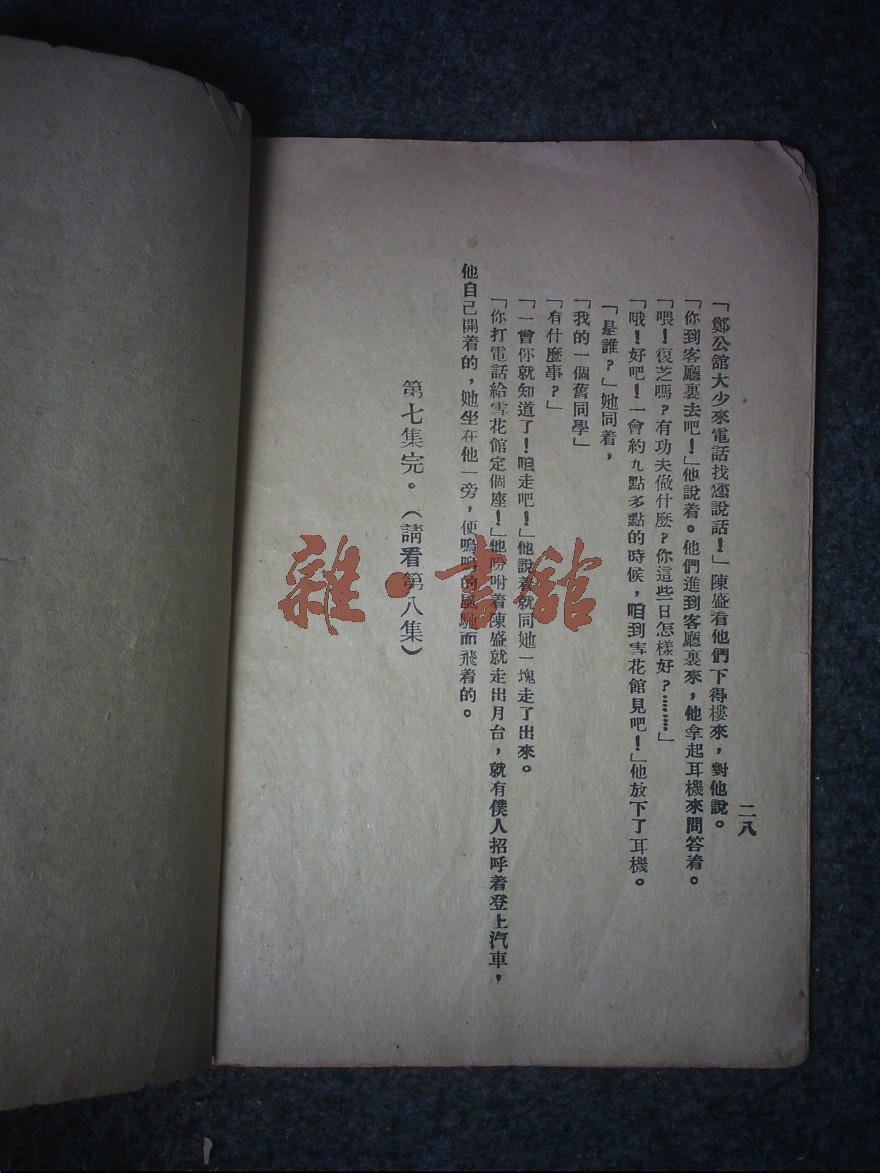 二八
「鄭公館大少來電話找您說話!」陳盛看他們下得樓來,對他說。
「你到客廳裏去吧!」他說着。他們進到客廳裏來,他拿起耳機來問答着。
「喂!復芝嗎?有功夫做什麼?你這些日怎樣好?⋯⋯⋯」
「哦!好吧!一會約九點多點的時候,咱到雪花館見吧!」他放下了耳機。
「是誰?」她同着,
「我的一個舊同學」
「有什麼事?」
「一會你就知道了!咱走吧!」他說着就同她一塊走了出來。
「你打電話給雪花館定個座!」他吩咐着陳盛就走出月台,就有僕人招呼着登上汽車,
他自己開着的,她坐在他一旁,便嗚嗚的風馳而飛着的。
第七集完。(請看第八集)
雜·書館